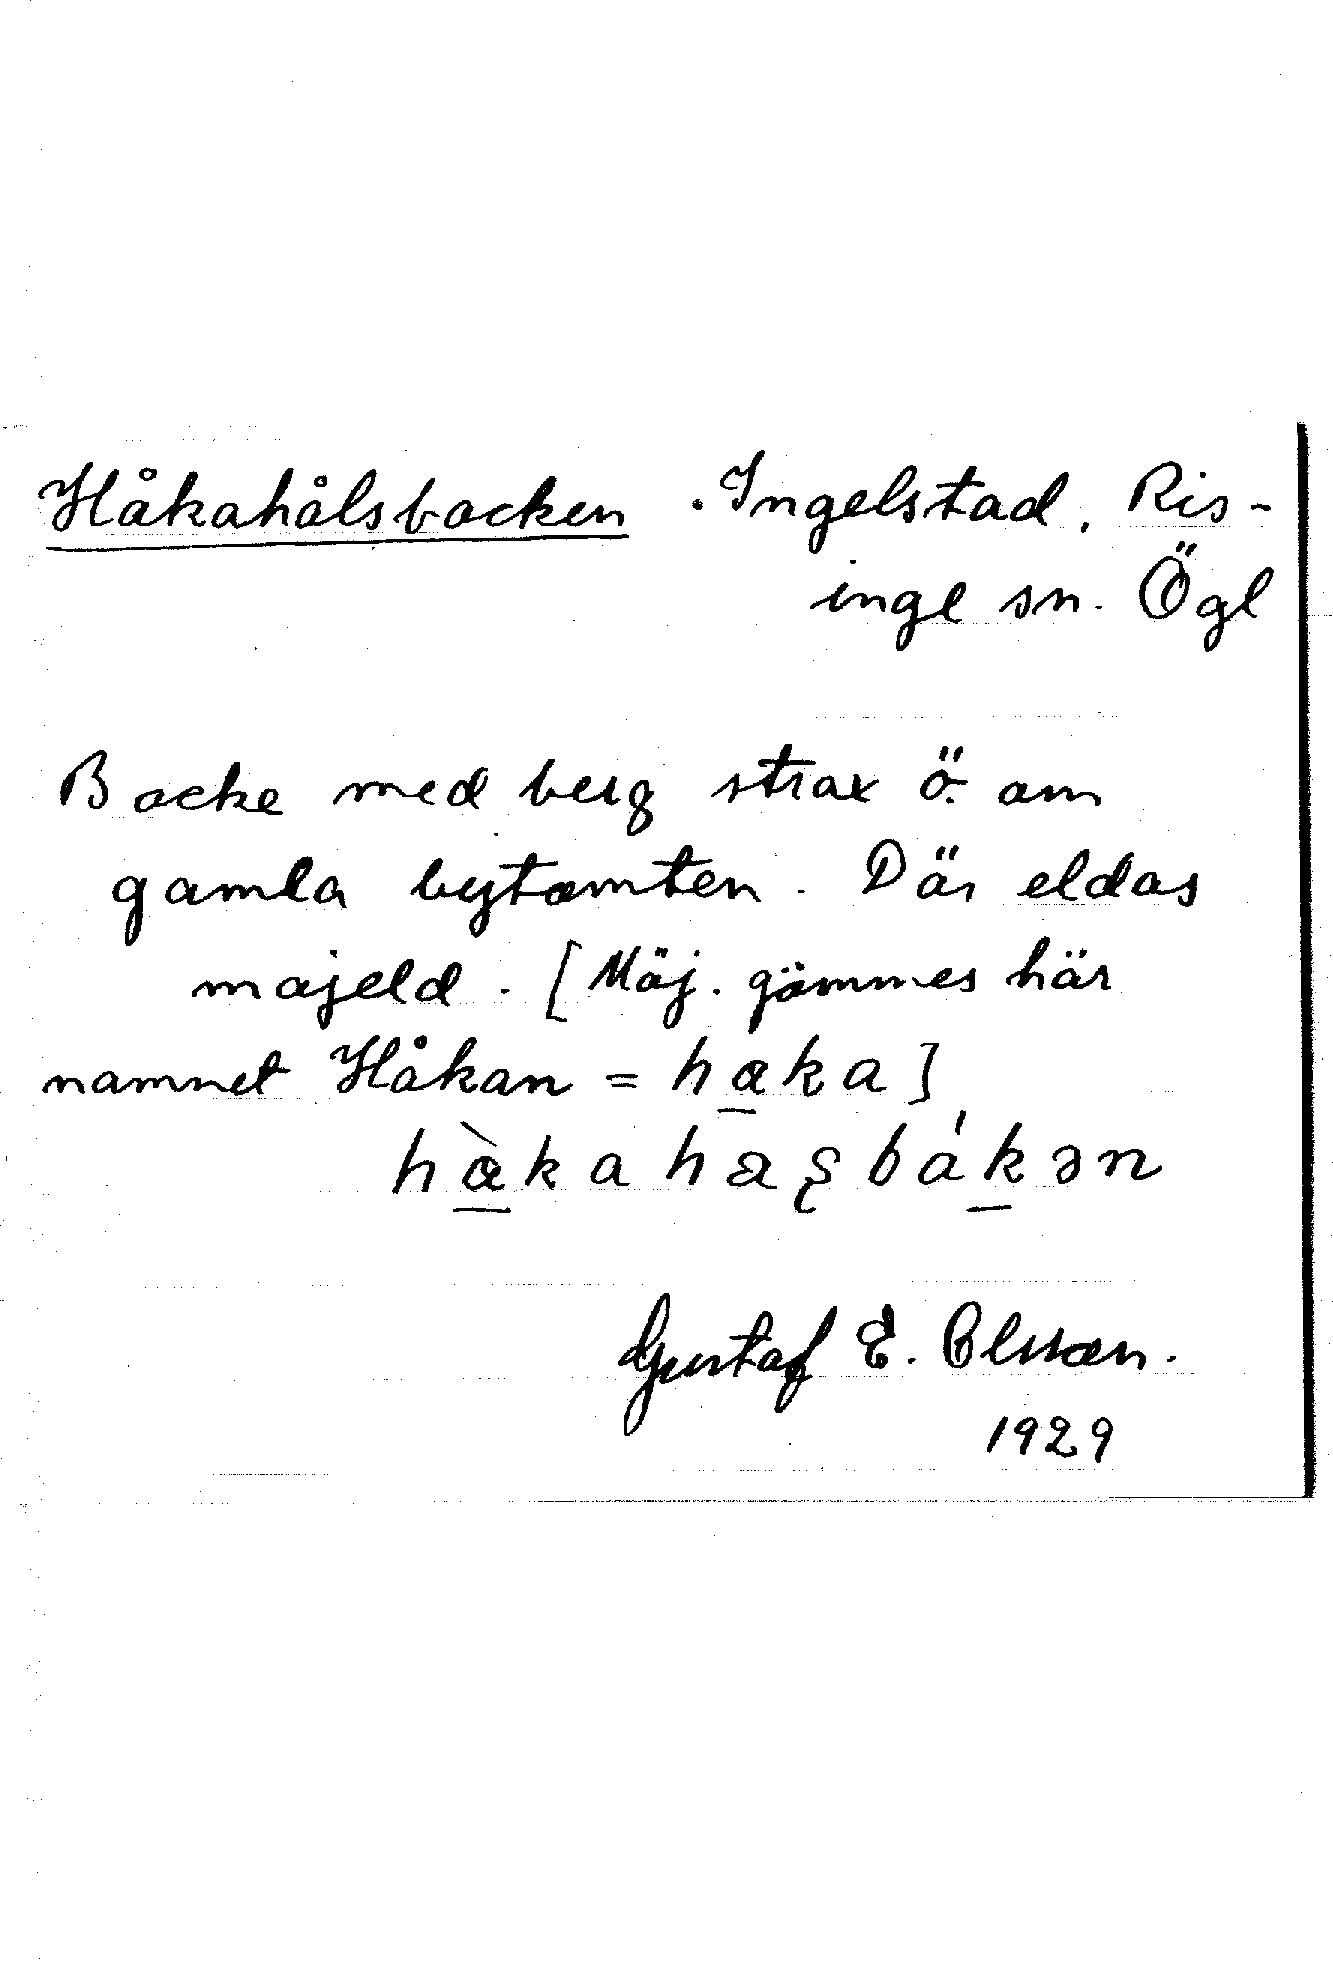 Håkahålsbacken . Ingelstad, Ris-
inge sn. Ögl
Backe med berg strax ö. om
gamla bytomten. Där eldas
majeld. [Möj. gömmes här
namnet Håkan = haka]
Gustaf E. Olsson.
1929